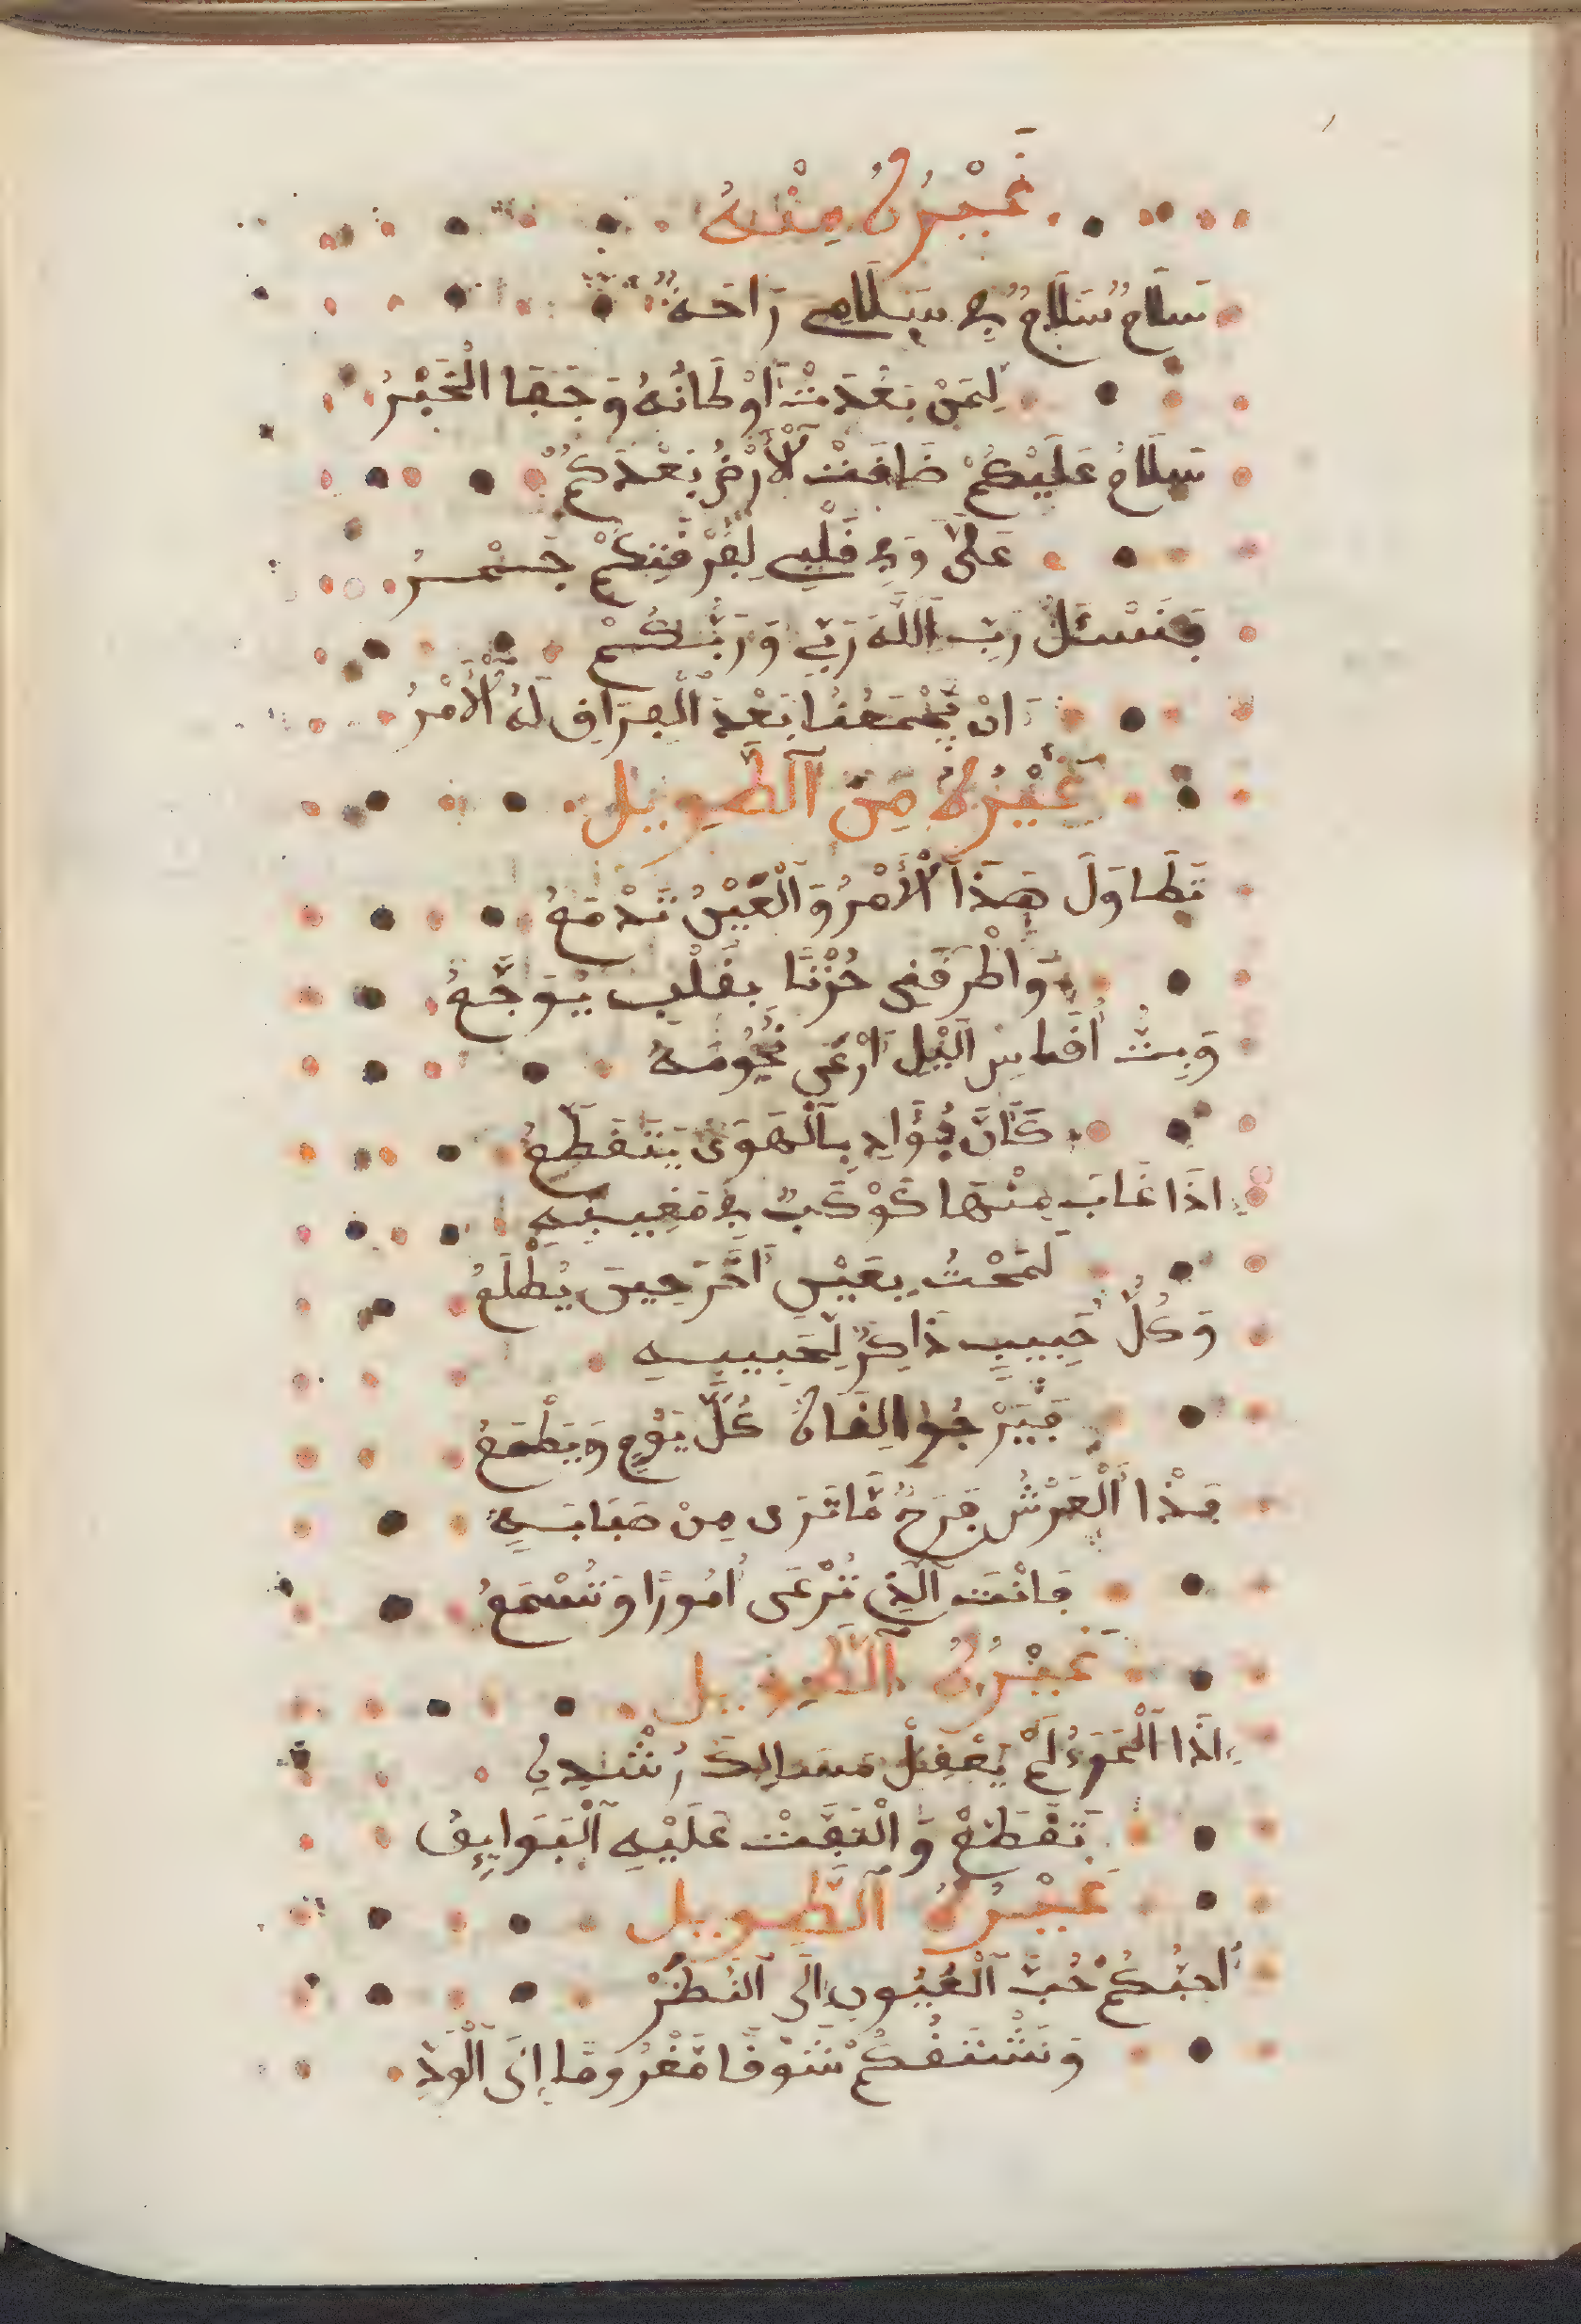 غَيْرُهُ مِنْهُ
سَلَامٌ سَلَامٌ فِي سَلَامِي رَاحَةٌ
لِمَنْ بَعُدَتْ أَوْطَانُهُ وَجَفَا الْخَبْرُ
سَلَامٌ عَلَيْكُمْ ضَاقَتْ ٱلْأَرْضُ بَعْدَكُمْ
عَلَيَّ وَفِي قَلْبِي لِفُرْقَتِكُمْ جَمْرُ
فَنَسْئَلُ رَبِّ ٱللَّهَ رَبِّي وَرَبُّكُمْ
اَنْ يَجْمَعُنَا بَعْدَ ٱلْفِرَاقِ لَهُ ٱلْأَمْرُ
غَيْرُهُ مِنَ ٱلطَّوِيلِ
تَطَاوَلَ هَذَا ٱلْأَمْرُ وَٱلْعَيْنُ تَدْمَعُ
وَأَطْرَقَنِي حُزْنًا بِقَلْبٍ يُوَجَّعُ
وَبِتُّ أُقَاسِ ٱلَّيْلَ أَرْعَى نُجُومَهُ
كَأَنَّ فُؤَادِ بِٱلْهَوَى يَتَقَطَّعُ
اِذَا غَابَ مِنْهَا كَوْكَبٌ فِي مَغِيبِهِ
لَمَحْتُ بِعَيْنِ أَخَّرَ حِينَ يُطْلَعُ
وَكُلُّ حَبِيبٍ ذَاكِرٌ لِحَبِيبِهِ
فَيَرْجُوا الِقَاهُ كُلَّ يَوْمٍ وَيَطْمَعُ
فَذَا ٱلْعَرْشِ فَرِّحْ مَّا تَرَى مِنْ صَبَابَةٍ
فَانْتَ ٱلَّذِي تَرْعَى أُمُورًا وَتَسْمَعُ
غَيْرُهُ ٱلطَّوِيلِ
اِذَا ٱلْمَرْءُ لَمْ يَعْقِلْ مَسَالِكَ رُشْدِهِ
تَقَطَّعْ وَالْتَفَّتْ عَلَيْهِ ٱلْبَوَايِقُ
غَيْرُهُ ٱلطَّوِيلِ
أُحِبُّكُمْ حُبَّ ٱلْعُيُونِ اِلَى ٱلنَّظَرْ
وَنَشْتَقُكُمْ شَوْقًا مَغْرُومًا اِلَى ٱلْوَلَدِ